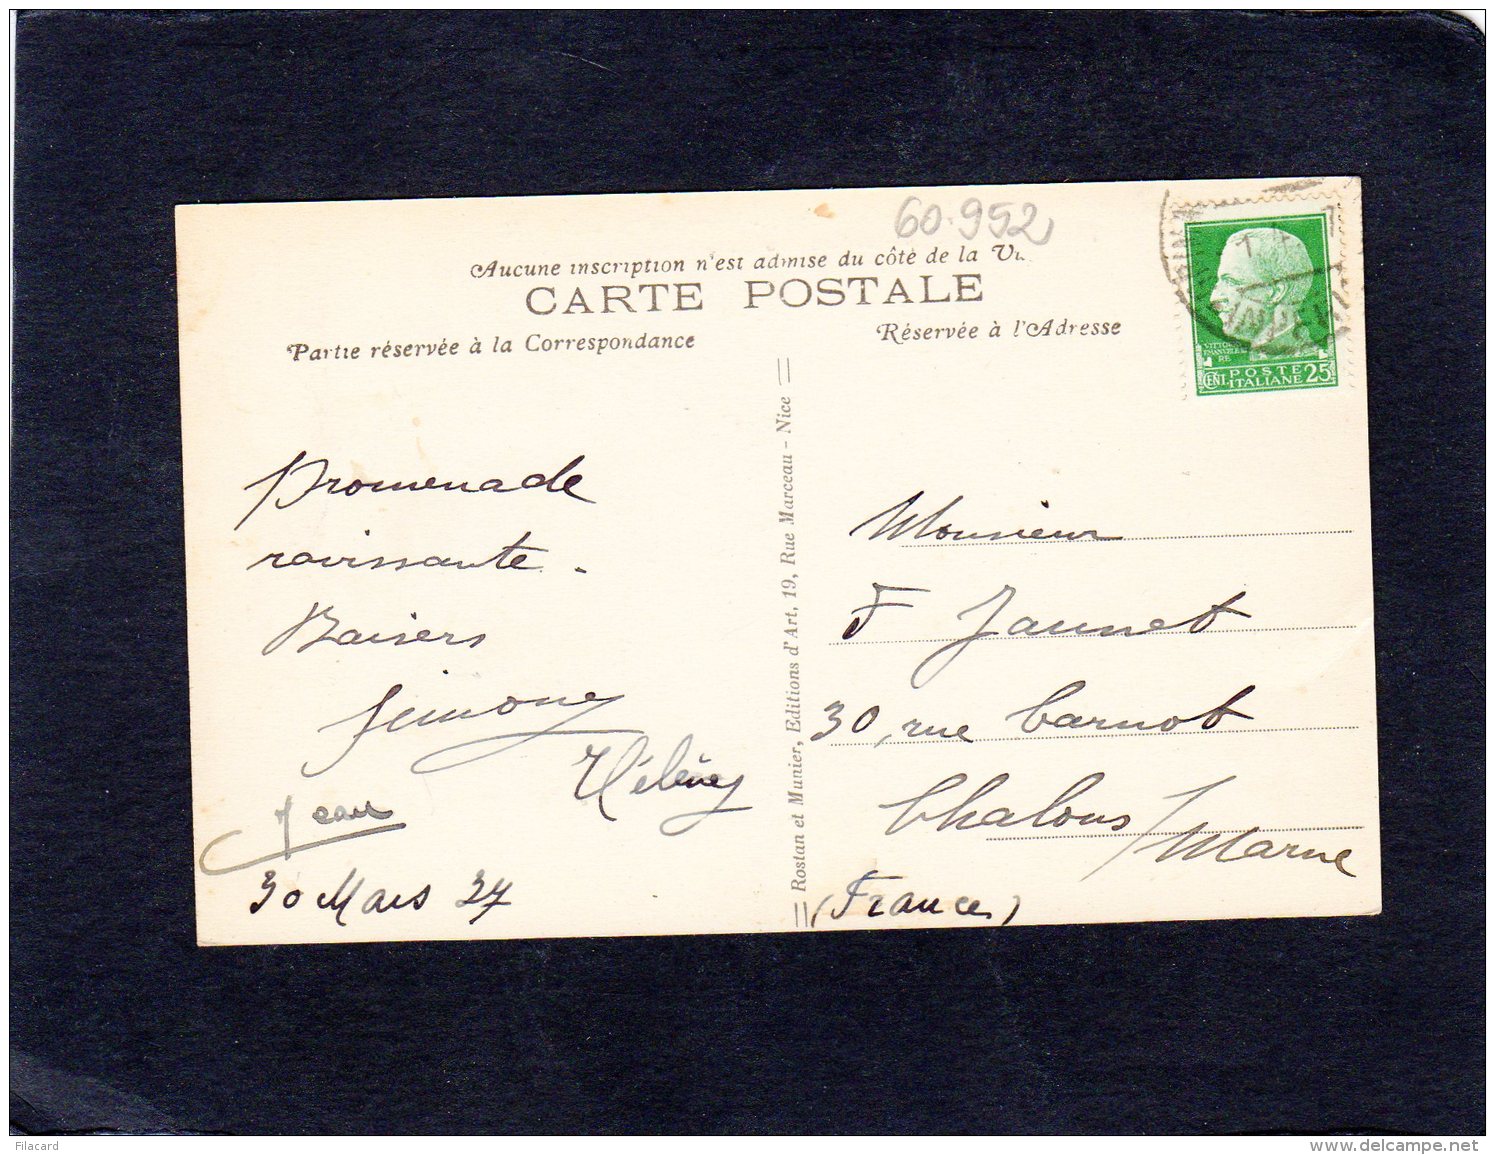 60.952
Aucune inscription n'est admise du côté de la
CARTE POSTALE
Partie réservée à la Correspondance
Réservée à l'Adresse
VITTORIO
EMANUELE
RE
CENT. POSTE
ITALIANE 25
Promenade
ravissante.
Baisers
Simone
Hélène
Jean
30 Mars 37
Rostan et Munier, Editions d'Art, 19, Rue Marceau - Nice
Monsieur
F Jaunet
30, rue Carnot
Chalons / Marne
(France)
Filacard
www.delcampe.net